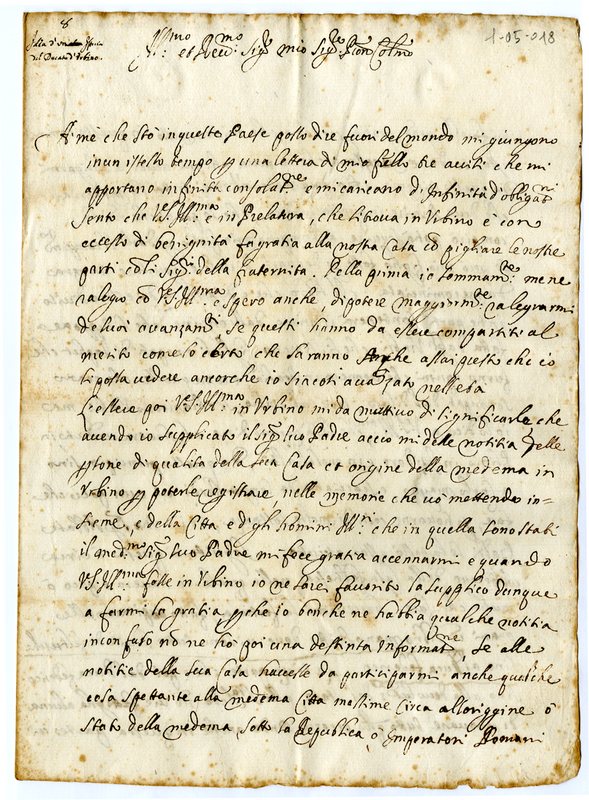 8
1-05-018
del Ducato d'Urbino.
Ill.mo et Rev.mo Sig.r mio Sig.r Pron Colmo
A me che stò in questo Paese posso dire fuori del mondo mi giungono
in un istesso tempo p una lettera di mio frello tre avvisi che mi
apportano infinita consolat.ne e mi caricano di infinità d'obligat.ni
sento che V.S. Ill.ma è in Prelatura, che si trova in Urbino è con
eccesso di benignità fa gratia alla nostra Casa cō pigliare le nostre
parti cō li Sig.ri della fraternita. Della prima io sommam.te me ne
ralegro cō V.S. Ill.ma e spero anche di potere maggiorm.te ralegrarmi
de suoi avanzam.ti se questi hanno da essere compartiti al
merito come so certo che saranno Anche assai presto che io
li possa vedere ancorche io sia così avanzato nell'età
L'essere poi V.S. Ill.ma in Urbino mi da mottivo di significarle che
avendo io supplicato il Sig.r suo Padre acciò mi desse notitia delle
psone di qualità della sua Casa et origine della medema in
Urbino p poterle registrare nelle memorie che vò mettendo in-
sieme, e della Città e di gli homini Ill.ri che in quella sono stati
il med.mo Sig.r suo Padre mi fece gratia accennarmi e quando
V.S. Ill.ma fosse in Urbino io ne sarei favorito la supplico dunque
a farmi la gratia, pche io benche ne habbia qualche notitia
in confuso nō ne hò poi una destinta informat.ne, Se alle
notitie della sua Casa havesse da participarmi anche qualche
cosa spettante alla medema Città messime circa all'origgine ò
stato della medema sotto la Republica ò Imperatori Romani